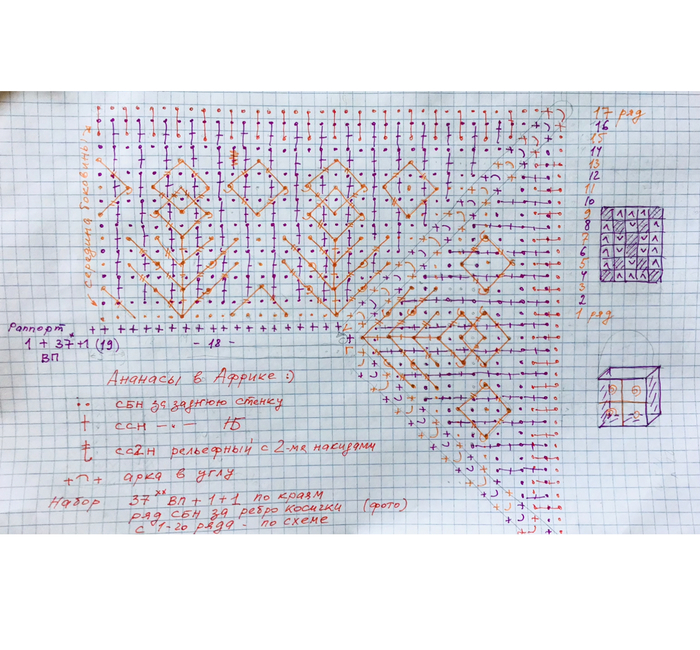 17 ряд
16
15
14
13
12
11
10
9
8
7
6
5
4
3
2
1 ряд
* середина боковины *
Раппорт
1 + 37* + 1 (19)
ВП
- 18 -
Ананасы в Африке :)
сбн за заднюю стенку
ссн -"-
сс2н рельефный с 2-мя накидами
арка в углу
Набор 37** ВП + 1 + 1 по краям
ряд сбн за ребро косички (фото)
с 1-го ряда - по схеме